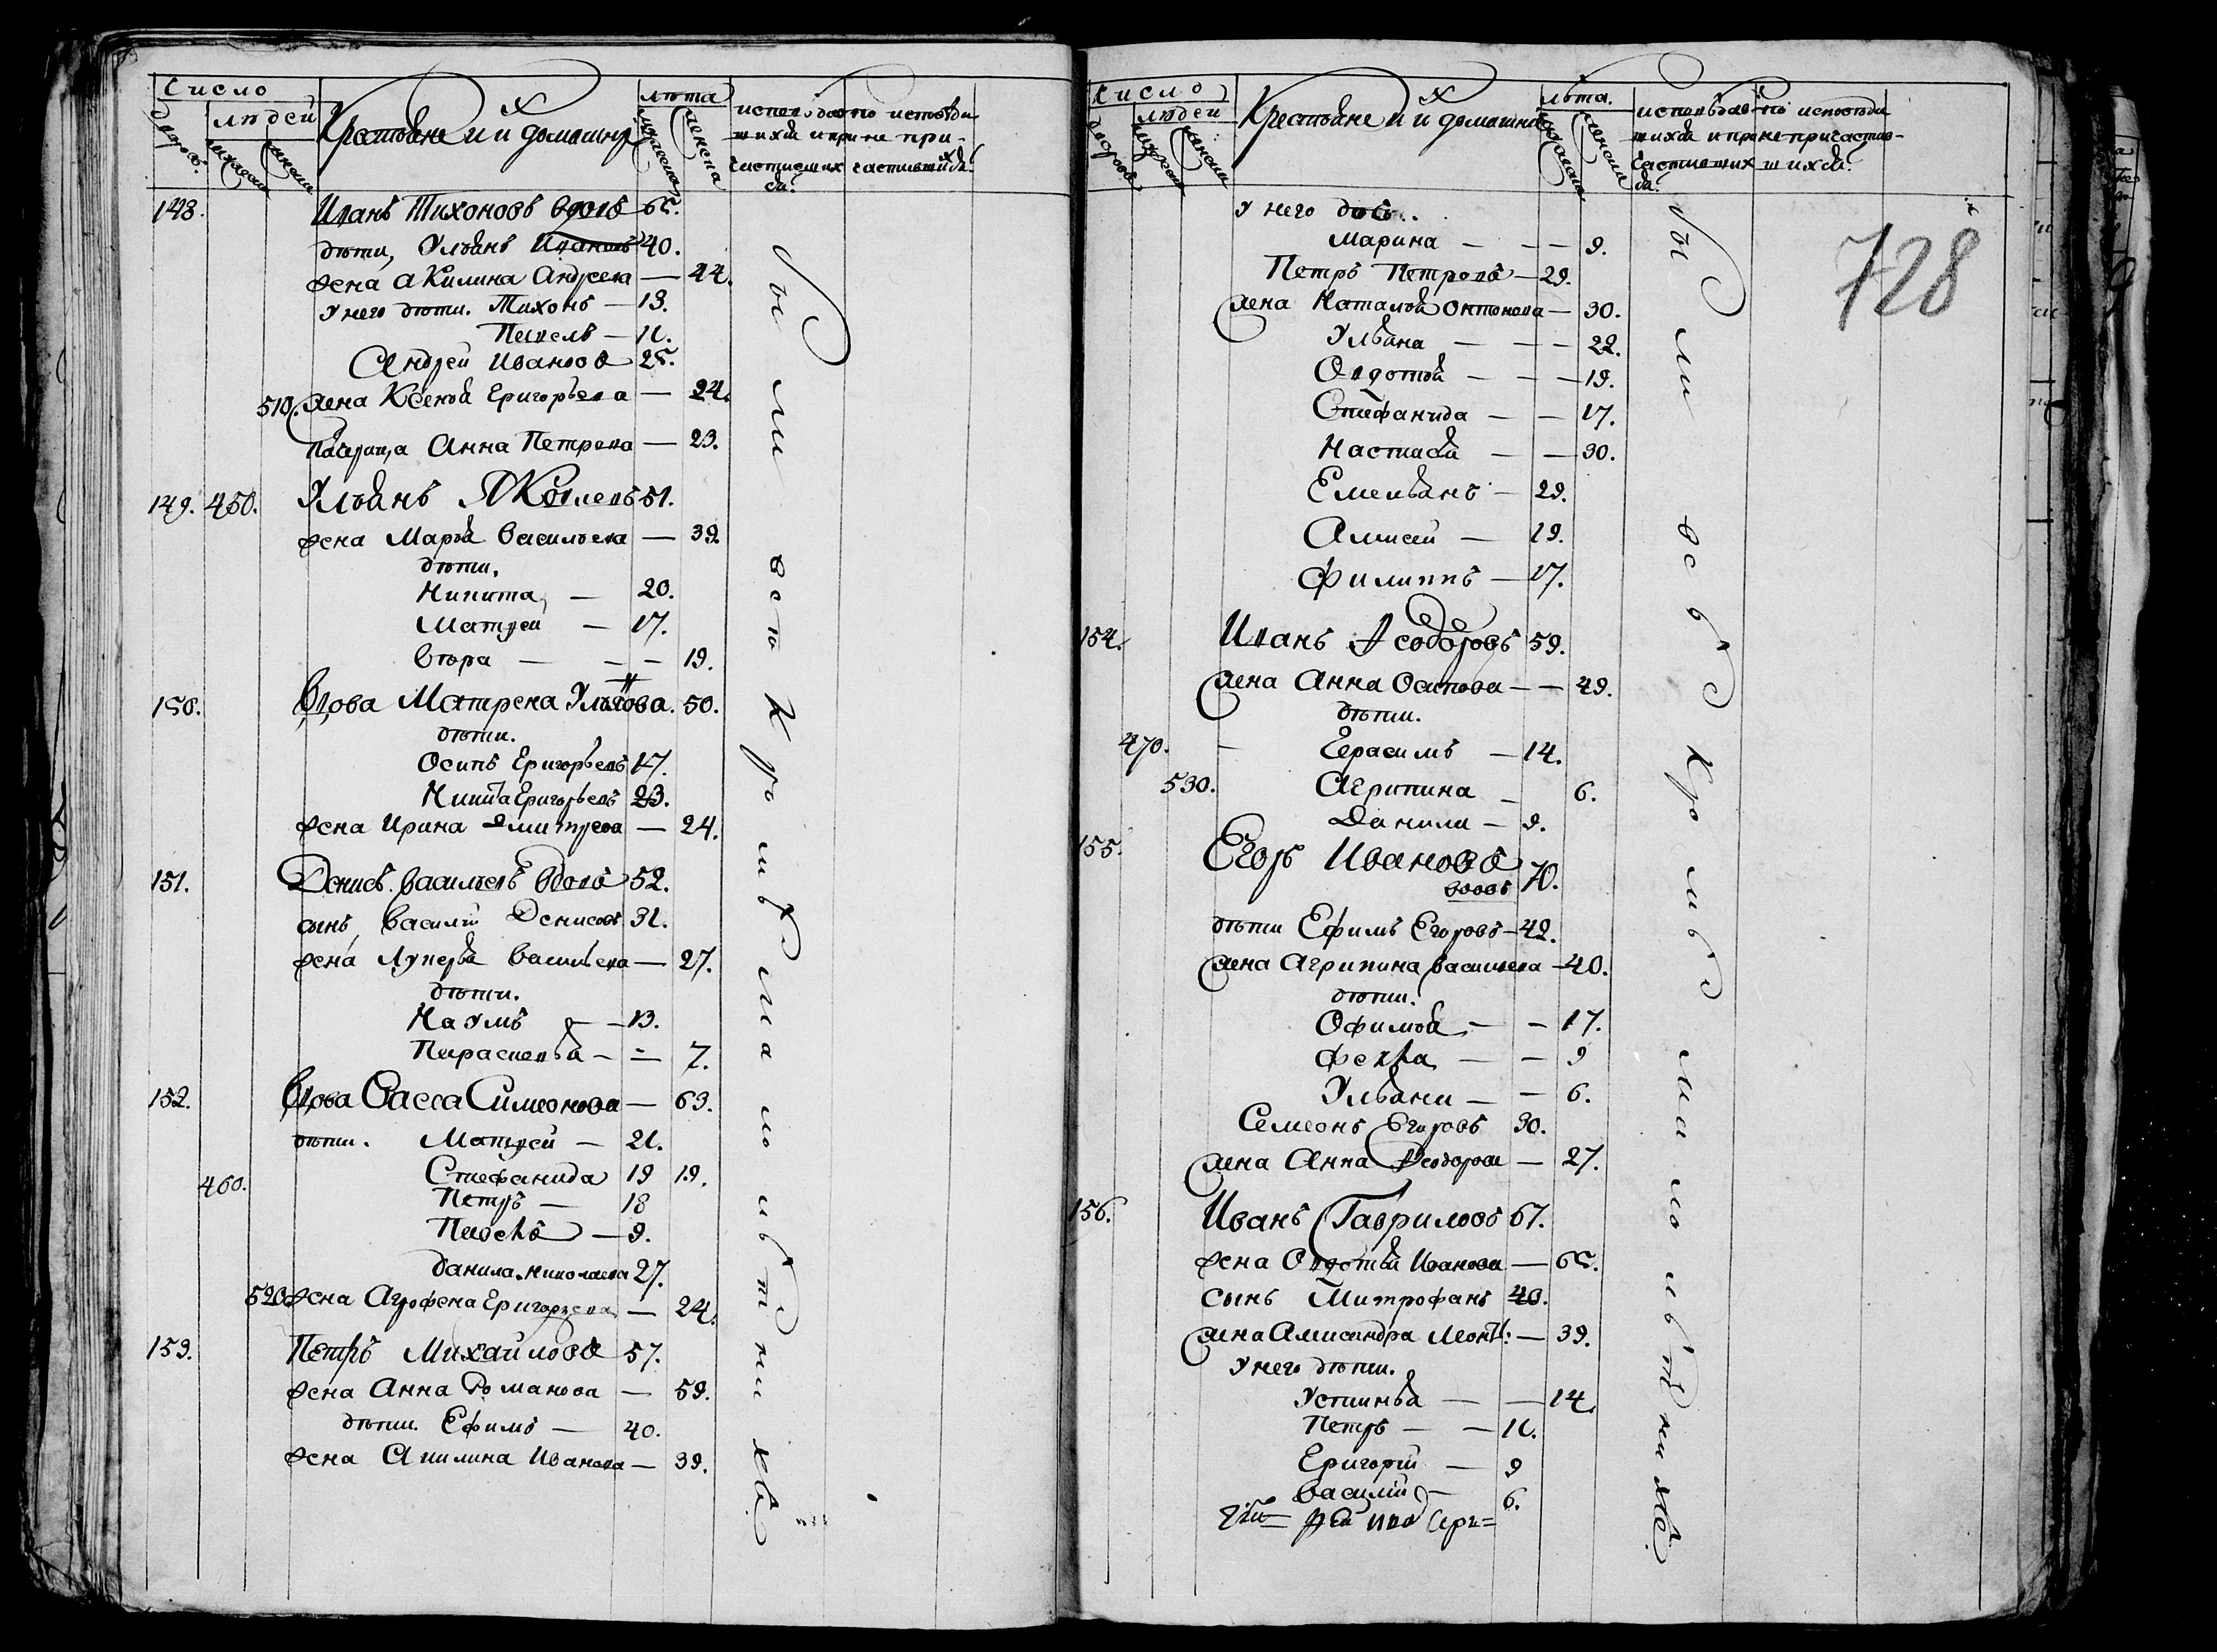 Число
людей
дворовъ
мужеска
женска
Крестьяне и их домашние
лѣта
мужеска
женска
исповѣдав- по исповѣди
шихся и при- не при-
частивших частившихся.
ся.
148. Иванъ Тихоновъ вдовъ 65.
дѣти, Ульянъ Ивановъ 40.
жена Акилина Андреева — 44.
у него дѣти. Тихонъ — 13.
Павелъ — 11.
Андрей Ивановъ 25.
510. жена Ксенья Григорьева — 24.
падчерица Анна Петрова — 23.
149. 450. Ульянъ Яковлевъ 51.
жена Марья Васильева — 39.
дѣти,
Никита — 20.
Матфей — 17.
Вѣра — — — 19.
150. Вдова Матрена Ульянова. 50.
дѣти.
Осипъ Григорьевъ 17.
Никита Григорьевъ 23.
жена Ирина Дмитрева — 24.
151. Денисъ Васильевъ вдовъ 52.
сынъ, Василий Денисовъ 31.
жена Лукерья Васильева — 27.
дѣти.
Наумъ — 13.
Парасковья — — 7.
152. Вдова Васса Симеонова — 63.
дѣти. Матфей — 21.
Стефанида 19 19.
460. Петръ — 18
Павелъ — 9.
Данила Николаевъ 27.
520. жена Агрофена Григорьева — 24.
153. Петръ Михайловъ 57.
жена Анна Романова — 59.
дѣти. Ефимъ — 40.
жена Акилина Иванова — 39.
Число
людей
дворовъ
мужеска
женска
Крестьяне и их домашние
лѣта.
мужеска
женска
исповѣдав- по исповѣди
шихся и при- не причастив-
частившихъ шихся.
ся.
728
у него дѣти.
Марина — — — 9.
Петръ Петровъ — 29.
жена Наталья Онтонова — 30.
Ульяна — — — 22.
Овдотья — — — 19.
Стефанида — — 17.
Настасья — — 30.
Емельянъ — 29.
Алексей — 19.
Филиппъ — 17.
154. Иванъ Феодоровъ 59.
жена Анна Осипова — — 49.
дѣти.
470. — Герасимъ — 14.
530. Агрипина — 6.
Данила — 9.
155. Егоръ Ивановъ
вдовъ 70.
дѣти Ефимъ Егоровъ — 42.
жена Агрипина Васильева — 40.
дѣти.
Офимья — — 17.
Фекла — — 9
Ульяна — — 6.
Семеонъ Егоровъ 30.
жена Анна Феодорова — 27.
156. Иванъ Гавриловъ 67.
жена Овдотья Иванова — 65.
сынъ Митрофанъ 40.
жена Александра Леонт: — 39.
у него дѣти.
Устинья — — 14.
Петръ — — 11.
Григорий — 9
Василий — 6.